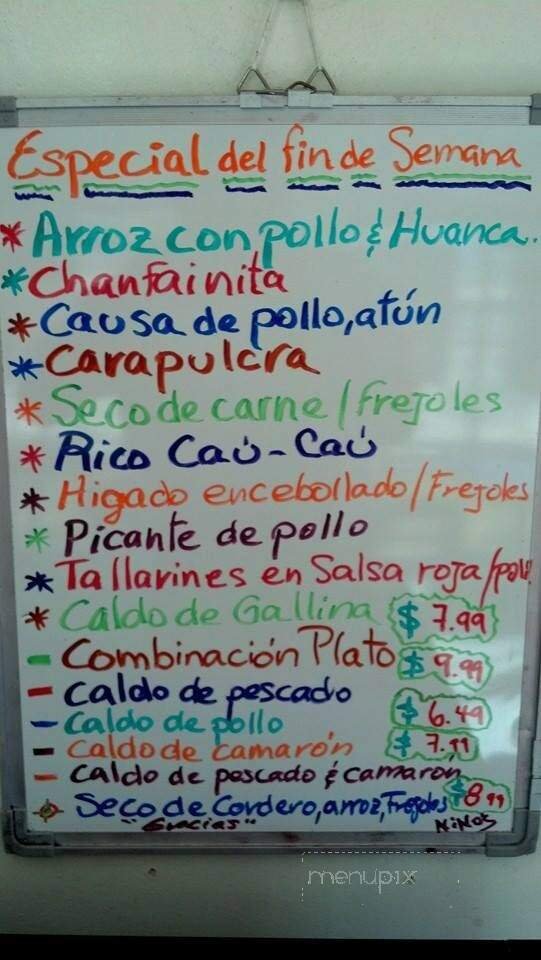 Especial del fin de Semana
* Arroz con pollo & Huanca.
* Chanfainita
* Causa de pollo, atún
* Carapulcra
* Seco de carne / Frejoles
* Rico Caú-Caú
* Higado encebollado / Frejoles
* Picante de pollo
* Tallarines en Salsa roja /
* Caldo de Gallina $7.99
- Combinación Plato $9.99
- Caldo de pescado
- Caldo de pollo $6.49
- Caldo de camarón
- Caldo de pescado & camarón
* Seco de Cordero, arroz, Frejoles $8.99
"Gracias" NiNos
menupix